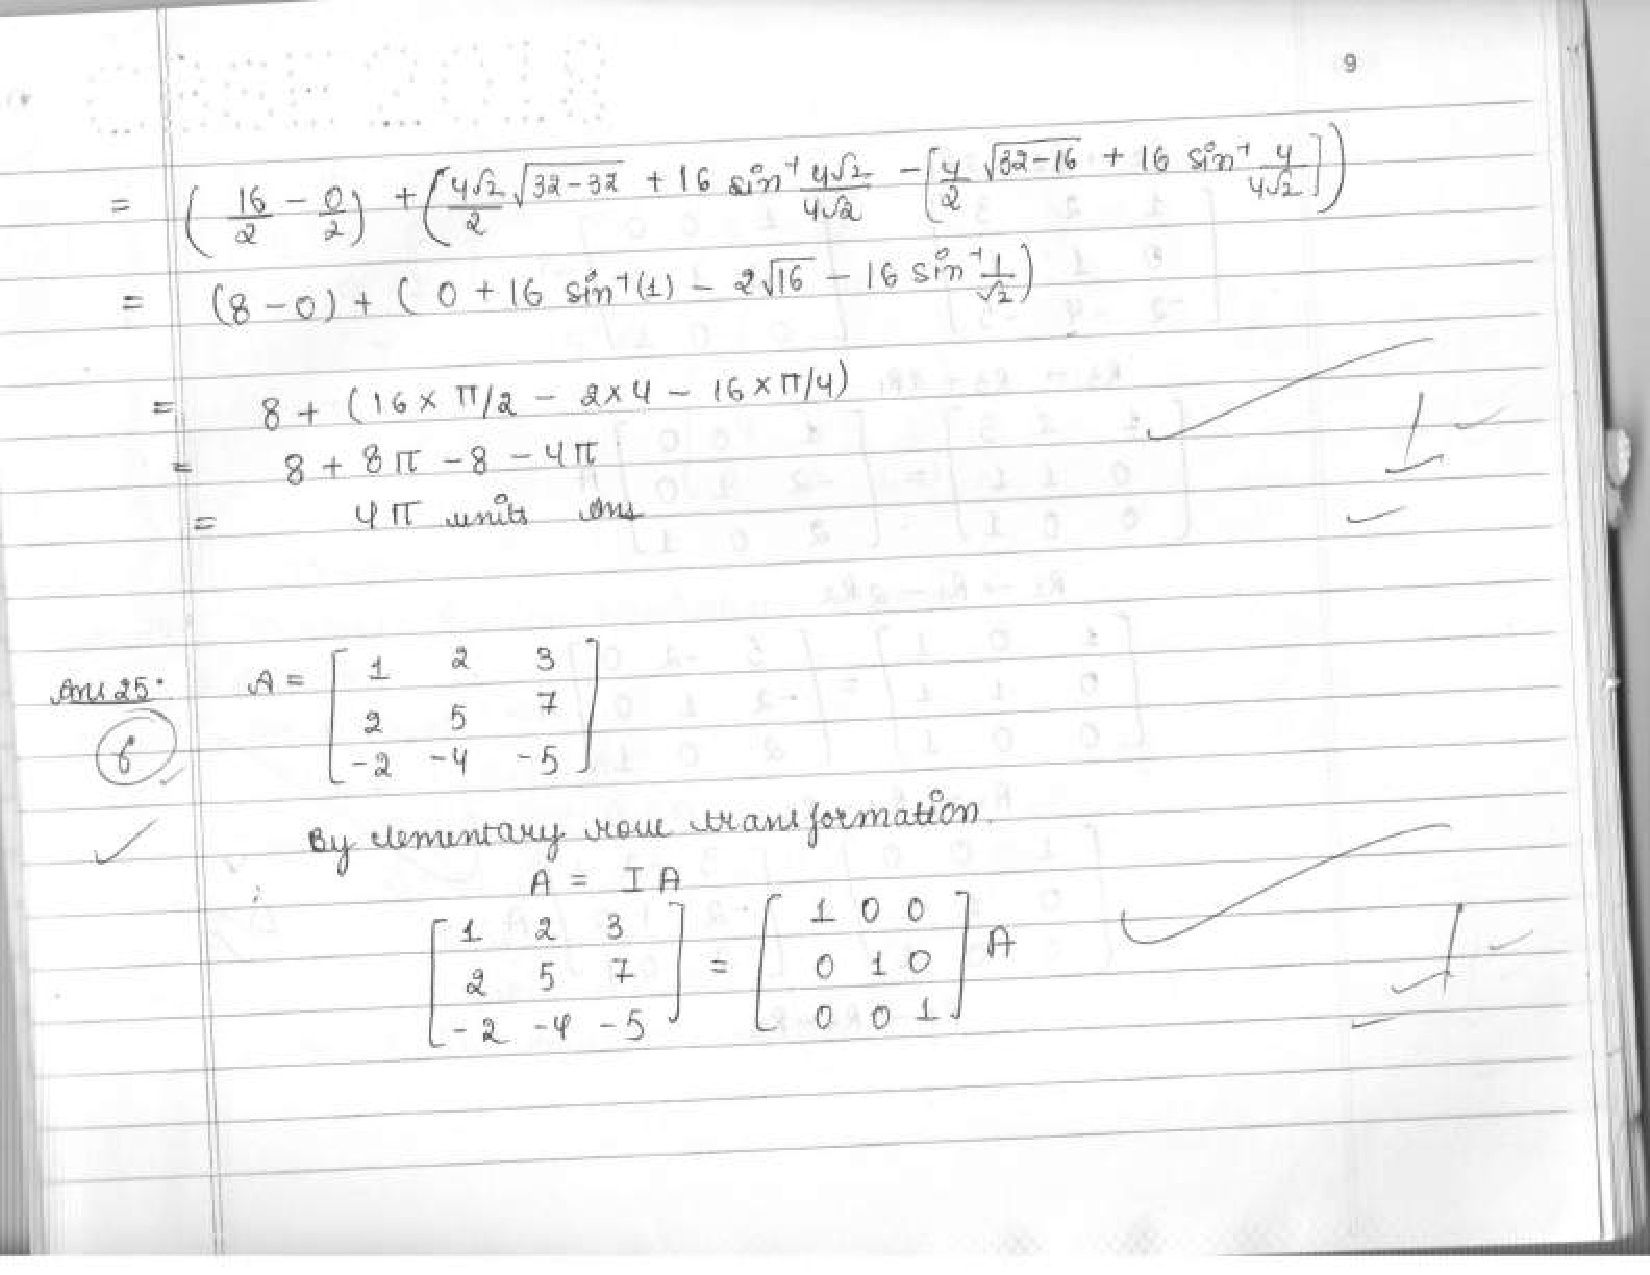 9
= (16/2 - 0/2) + (4√2/2 √32-32 + 16 sin⁻¹ 4√2/4√2 - [4/2 √32-16 + 16 sin⁻¹ 4/4√2])
= (8-0) + (0 + 16 sin⁻¹(1) - 2√16 - 16 sin⁻¹ 1/√2)
= 8 + (16 × π/2 - 2×4 - 16 × π/4)
= 8 + 8π - 8 - 4π
= 4π units Ans
1
Ans 25. A = [1 2 3
2 5 7
-2 -4 -5]
6
By elementary row transformation.
A = IA
[1 2 3
2 5 7
-2 -4 -5] = [1 0 0
0 1 0
0 0 1] A
1